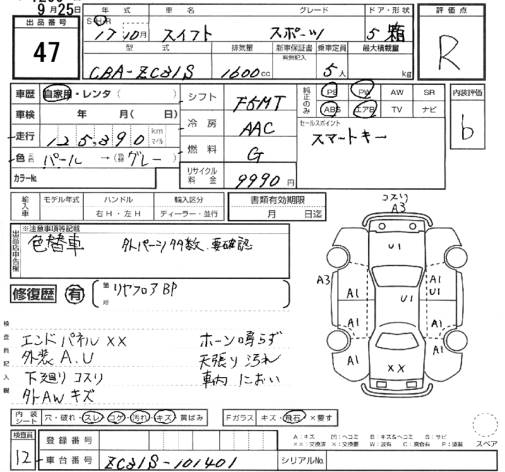 9月25日
出品番号
47
年式 車名 グレード ドア・形状
17年10月 スイフト スポーツ 5 箱
型式 排気量 新車保証書 乗車定員 最大積載量
CBA-ZC31S 1600cc 5人 kg
評価点
R
車歴 自家用・レンタ( )
車検 年 月( 日)
走行 125,390 km マイル
色 パール →(グレー)
カラーNo.
シフト F5MT
冷房 AAC
燃料 G
リサイクル料金 9990円
純正のみ
PS PW AW SR
ABS エアB TV ナビ
セールスポイント
スマートキー
内装評価
b
輸入車 モデル年式 ハンドル 輸入区分
右H・左H ディーラー・並行
書類有効期限
月 日迄
出品店申告欄
※注意事項等記載
色替車 外パーツ多数.要確認
修復歴 有 箇所 リヤフロアBP
検査員記入欄
エンドパネルXX
外装A.U
下廻りコスリ
外AWキズ
ホーン鳴らず
天張り汚れ
車内におい
コスリ
A3
U1
A3
A1 A1 U1 A1
A1 A1
XX
内装シート 穴・破れ・スレ・コゲ・汚れ・キズ・黄ばみ
Fガラス キズ・飛石・×要す
検査員
12
登録番号
車台番号 ZC31S-101401
シリアルNo.
A:キズ B:キズ&ヘコミ S:サビ
スペア